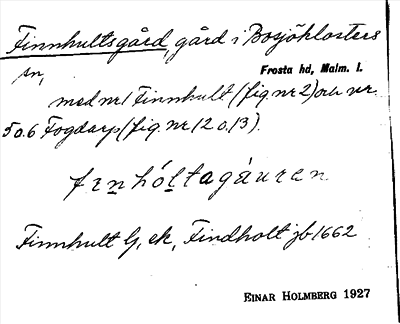 Finnhultsgård, gård i Bosjöklosters
sn,
Frosta hd, Malm. l.
med nr 1 Finnhult (fig. nr 2) och nr
5 o. 6 Fogdarp (fig. nr 12 o. 13).
fɪnhóltagåuren
Finnhult G, ek, Findholt jb 1662
EINAR HOLMBERG 1927